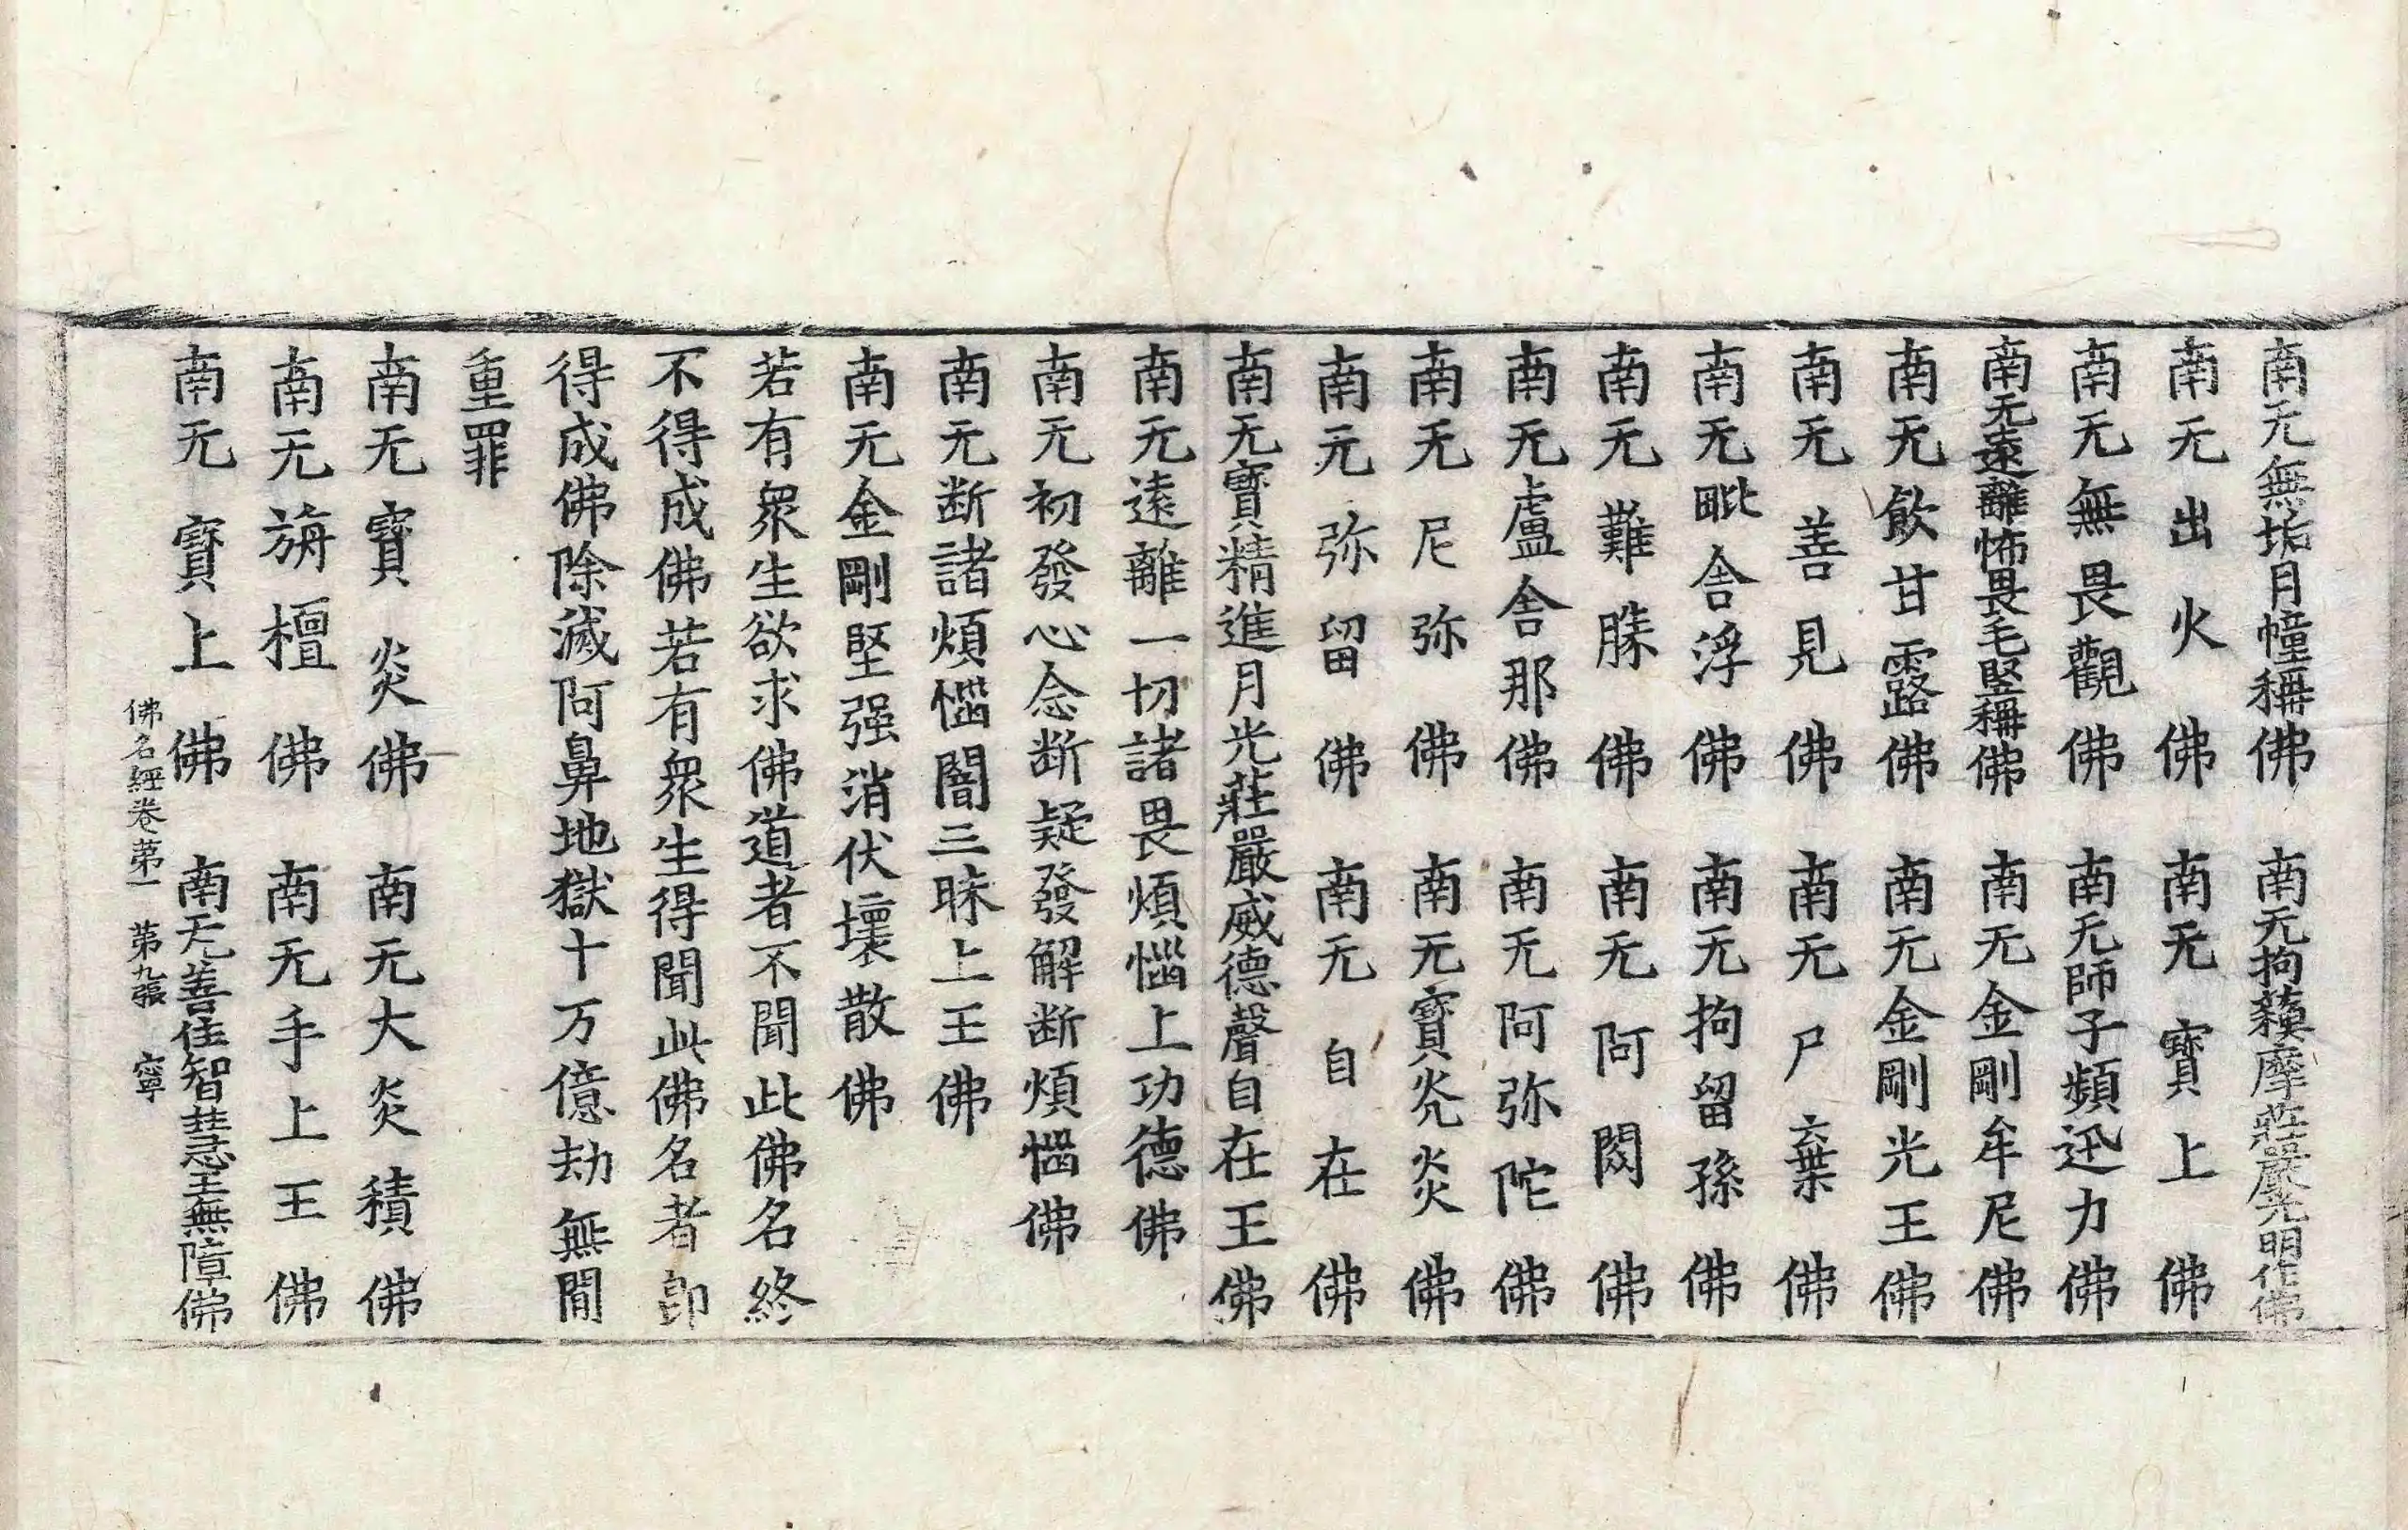 南无無垢月幢稱佛　南无拘蘓摩莊嚴光明作佛
南无出火佛　南无寶上佛
南无無畏觀佛　南无師子頻迅力佛
南无遠離怖畏毛竪稱佛　南无金剛牟尼佛
南无飮甘露佛　南无金剛光王佛
南无善見佛　南无尸棄佛
南无毗舍浮佛　南无拘留孫佛
南无難勝佛　南无阿閦佛
南无盧舍那佛　南无阿弥陀佛
南无尼弥佛　南无寶炎佛
南无弥留佛　南无自在佛
南无寶精進月光莊嚴威德聲自在王佛
南无遠離一切諸畏煩惱上功德佛
南无初發心念断疑發解断煩惱佛
南无断諸煩惱闇三昧上王佛
南无金剛堅强消伏壞散佛
若有衆生欲求佛道者不聞此佛名終
不得成佛若有衆生得聞此佛名者即
得成佛除滅阿鼻地獄十万億劫無間
重罪
南无寶炎佛　南无大炎積佛
南无旃檀佛　南无手上王佛
南无寶上佛　南无善住智慧王無障佛
佛名經卷第一　第九張　寧